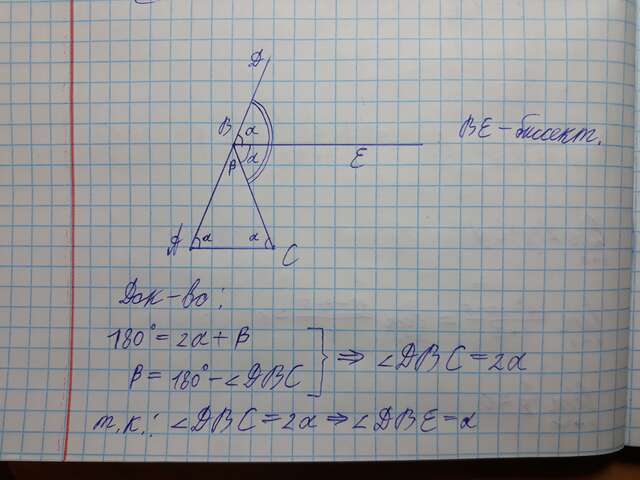 D
B α
BE - биссект.
α E
β
A α α C
Док-во:
180° = 2α + β
β = 180° - ∠DBC
} ⇒ ∠DBC = 2α
т.к.: ∠DBC = 2α ⇒ ∠DBE = α